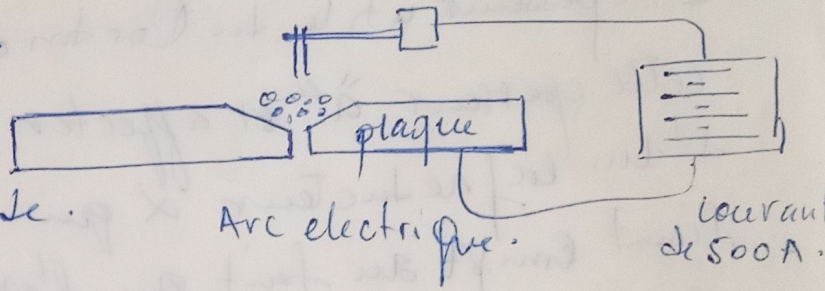 plaque
de.
Arc electrique.
couran
de 500A.